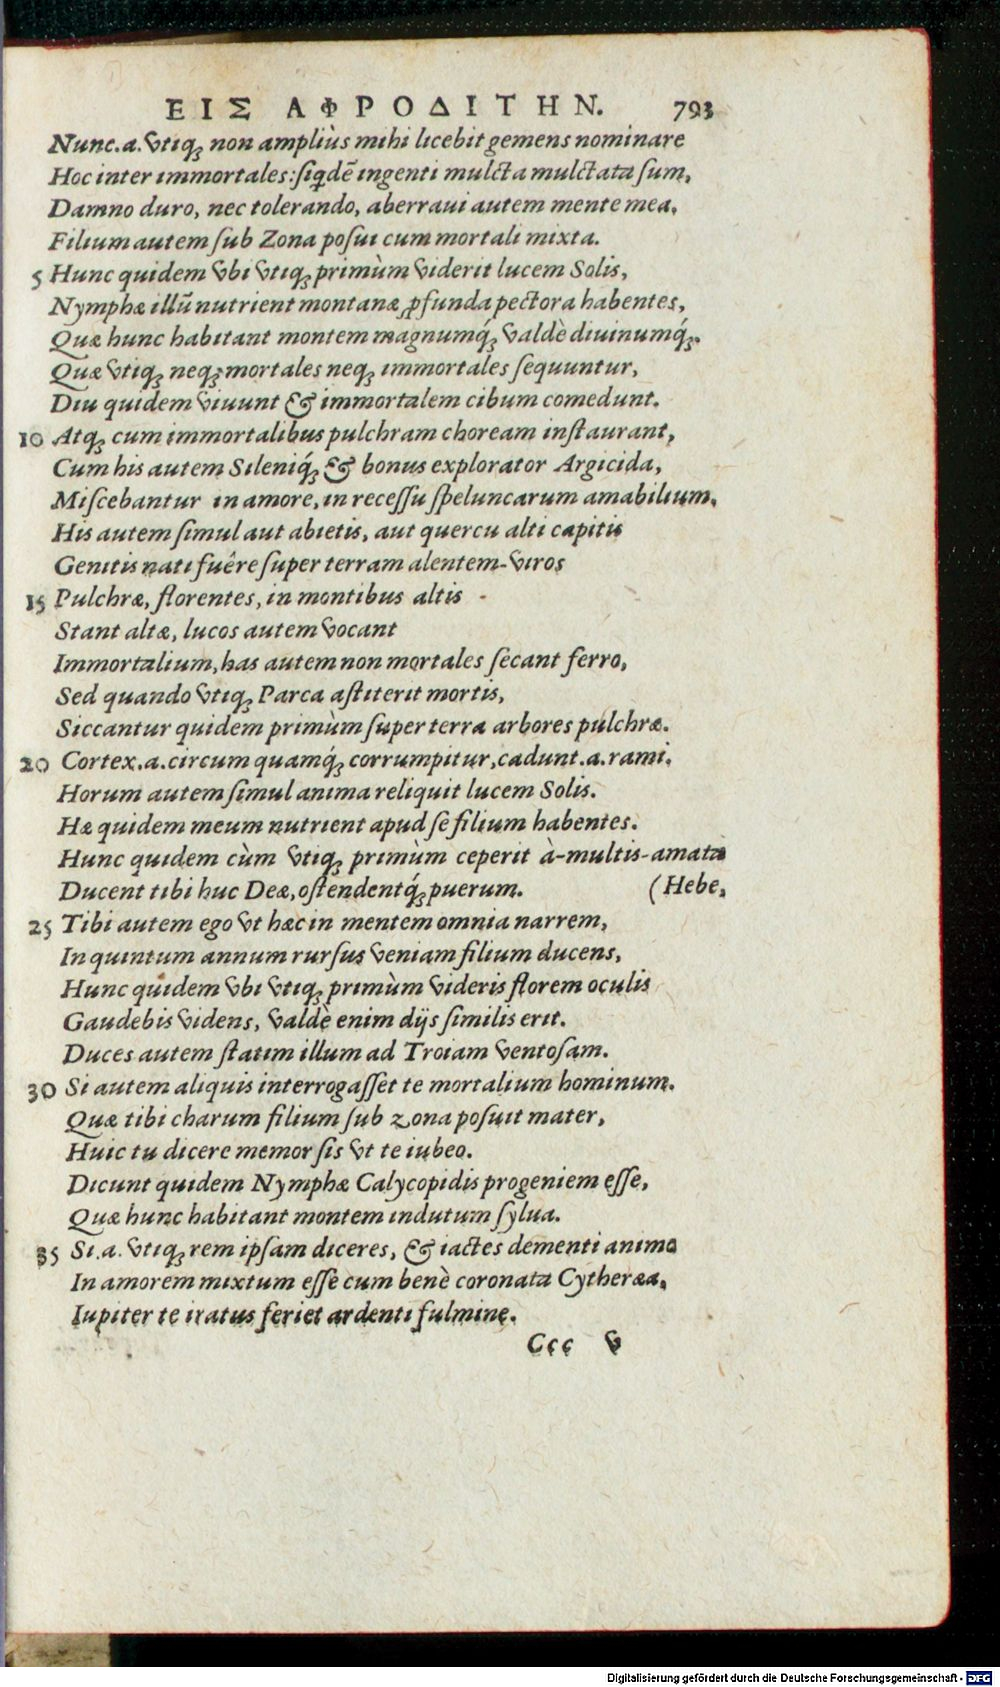 ΕΙΣ ΑΦΡΟΔΙΤΗΝ. 793
Nunc.a.vtiq; non ampliùs mihi licebit gemens nominare
Hoc inter immortales: siqdẽ ingenti mulcta mulctata sum,
Damno duro, nec tolerando, aberraui autem mente mea,
Filium autem sub Zona posui cum mortali mixta.
5 Hunc quidem vbi vtiq; primùm viderit lucem Solis,
Nymphæ illũ nutrient montanæ ꝓfunda pectora habentes,
Quæ hunc habitant montem magnumq́; valdè diuinumq́;.
Quæ vtiq; neq; mortales neq; immortales sequuntur,
Diu quidem viuunt & immortalem cibum comedunt.
10 Atq; cum immortalibus pulchram choream instaurant,
Cum his autem Sileniq́; & bonus explorator Argicida,
Miscebantur in amore, in recessu speluncarum amabilium.
His autem simul aut abietis, aut quercu alti capitis
Genitis nati fuêre super terram alentem-viros
15 Pulchræ, florentes, in montibus altis
Stant altæ, lucos autem vocant
Immortalium, has autem non mortales secant ferro,
Sed quando vtiq; Parca astiterit mortis,
Siccantur quidem primùm super terra arbores pulchræ.
20 Cortex.a.circum quamq́; corrumpitur, cadunt.a.rami.
Horum autem simul anima reliquit lucem Solis.
Hæ quidem meum nutrient apud se filium habentes.
Hunc quidem cùm vtiq; primùm ceperit à-multis-amata
Ducent tibi huc Deæ, ostendentq́; puerum. (Hebe,
25 Tibi autem ego vt hæc in mentem omnia narrem,
In quintum annum rursus veniam filium ducens,
Hunc quidem vbi vtiq; primùm videris florem oculis
Gaudebis videns, valdè enim dijs similis erit.
Duces autem statim illum ad Troiam ventosam.
30 Si autem aliquis interrogasset te mortalium hominum.
Quæ tibi charum filium sub zona posuit mater,
Huic tu dicere memor sis vt te iubeo.
Dicunt quidem Nymphæ Calycopidis progeniem esse,
Quæ hunc habitant montem indutum sylua.
35 Si.a.vtiq; rem ipsam diceres, & iactes dementi animo
In amorem mixtum esse cum benè coronata Cytheræa,
Iupiter te iratus feriet ardenti fulmine.
Ccc v
Digitalisierung gefördert durch die Deutsche Forschungsgemeinschaft - DFG